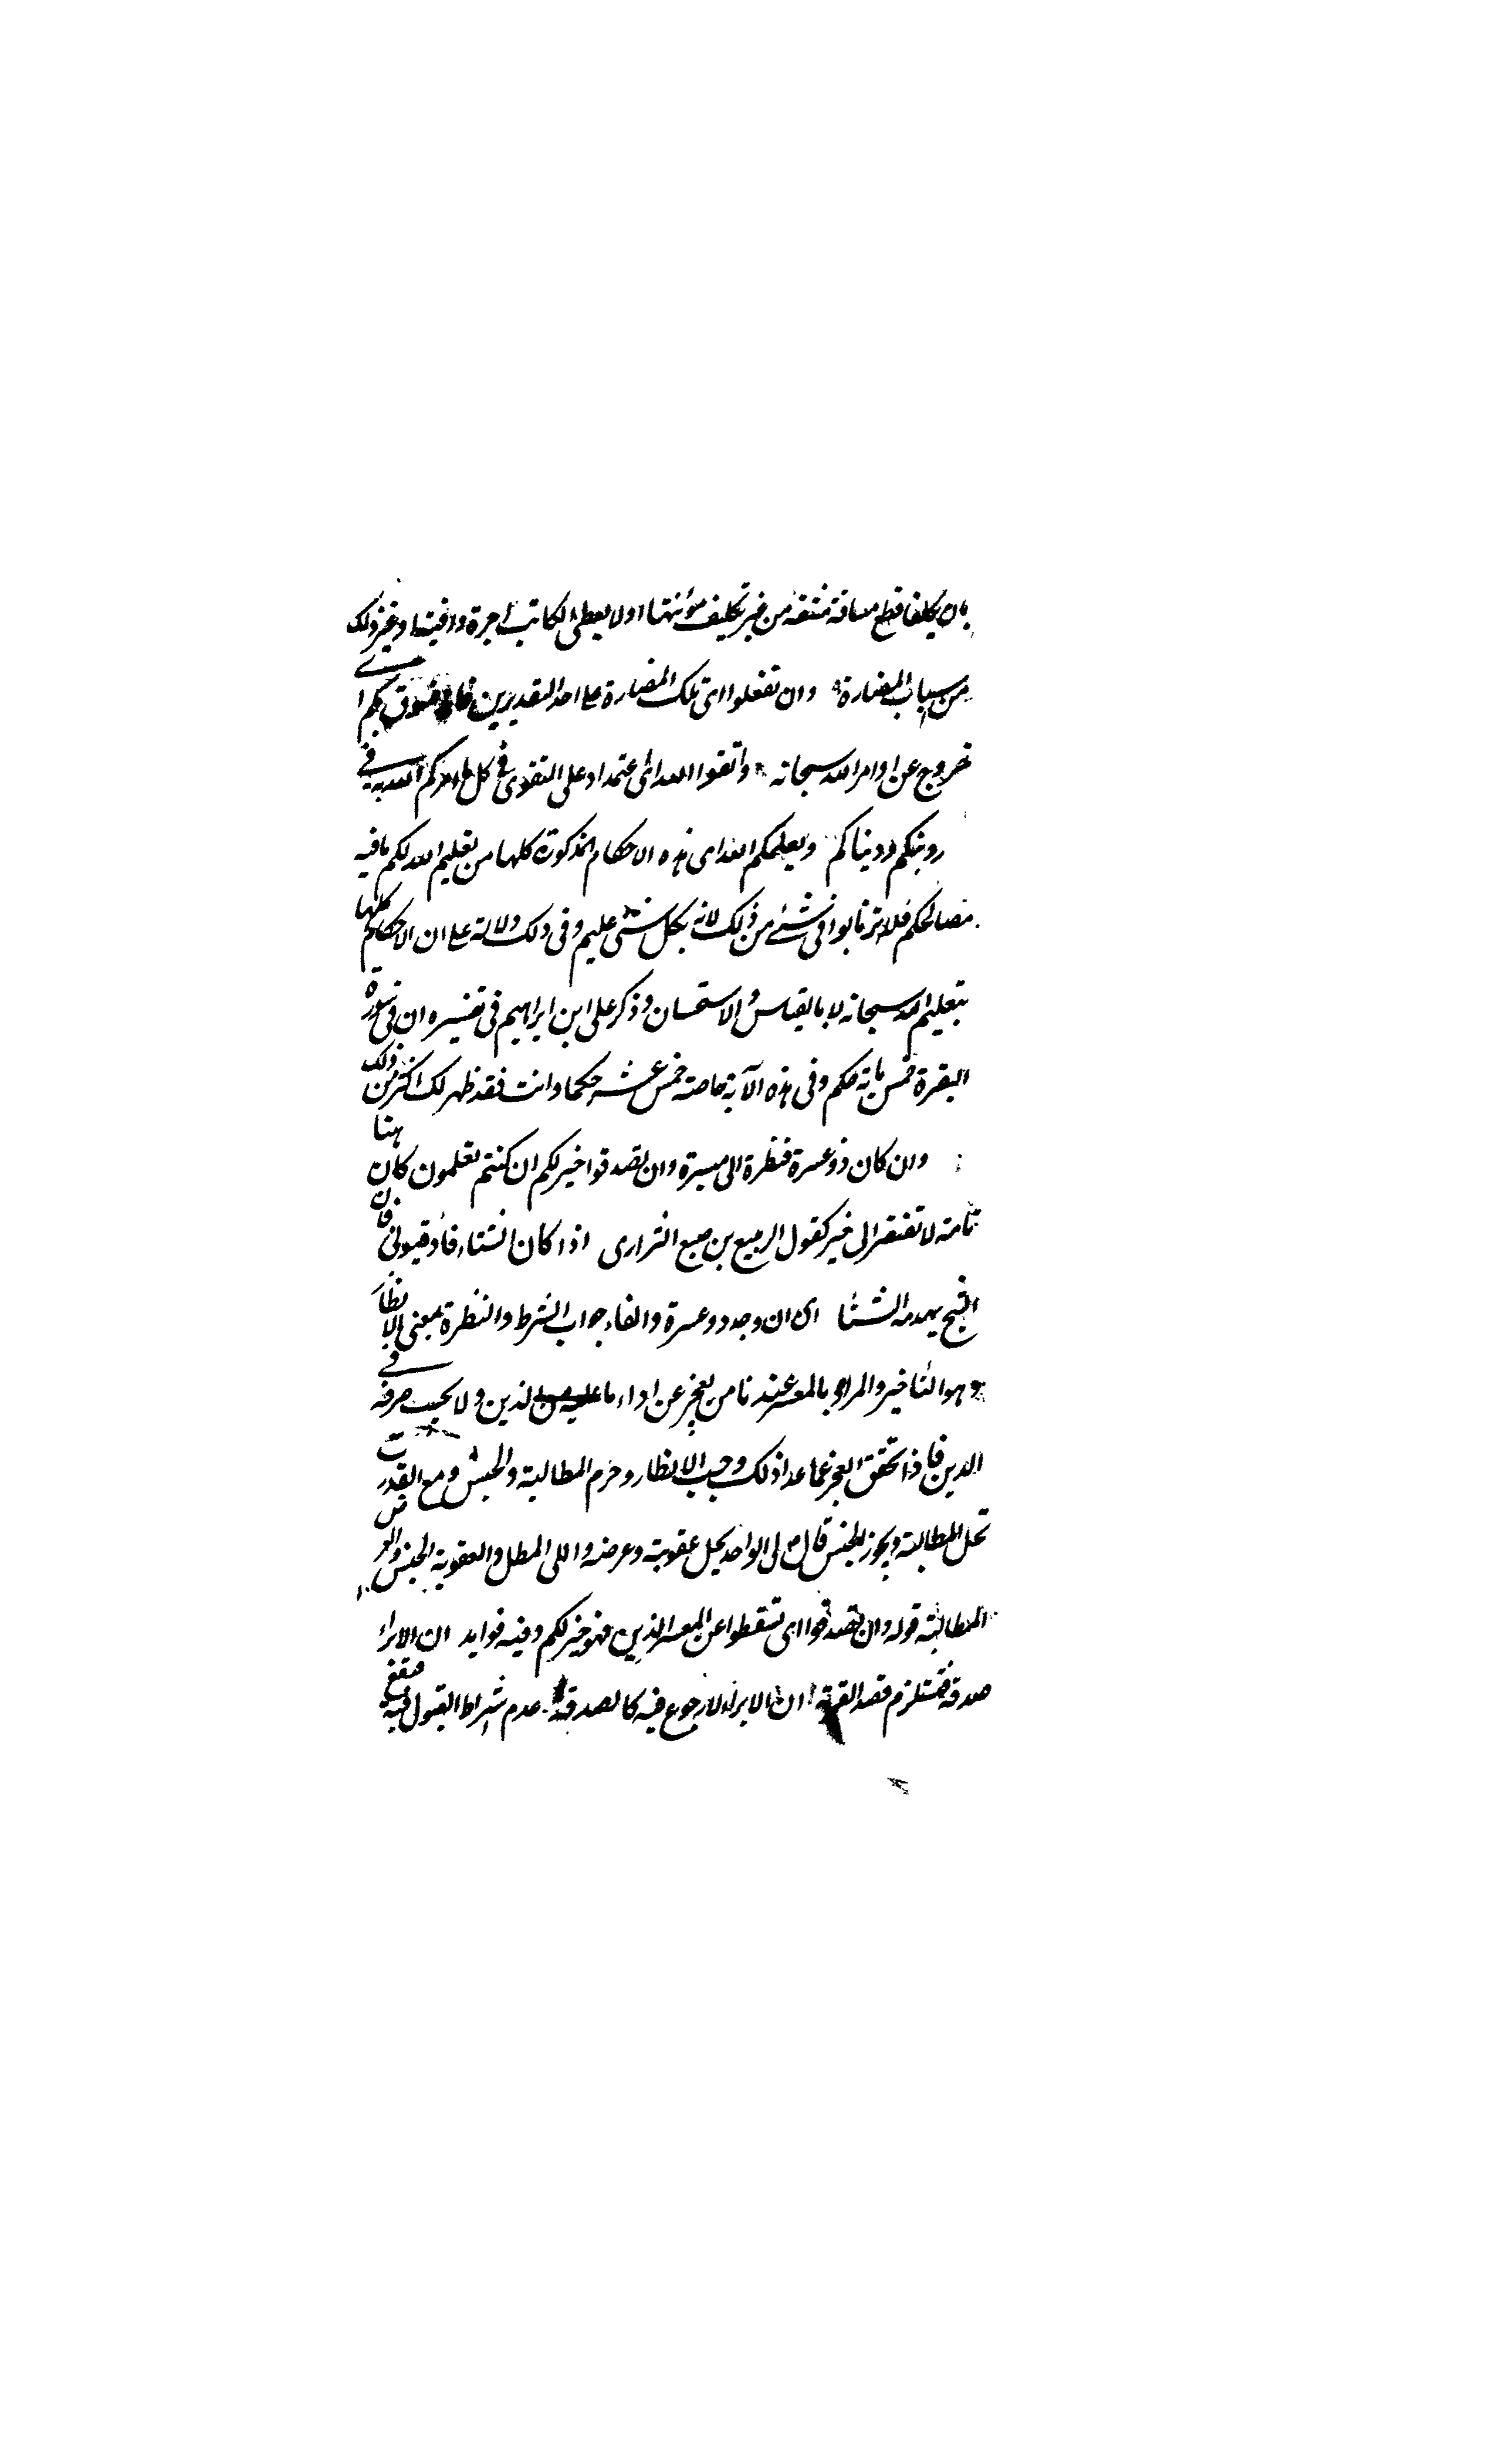 بان يكلفا قطع مسافة مشقة من غير تكليف مؤنتها او لا يعطى الكاتب اجرة وافية او غير ذلك
من اسباب المضارة وان تفعلوا اى تلك المضارة على احد التقديرين فانه فسوق بكم اى
خروج عن اوامر الله سبحانه واتقوا الله اى اعتمدوا على التقوى فى كل ما امركم الله به فى
دينكم ودنياكم ويعلمكم الله اى هذه الاحكام المذكورة كلها من تعليم الله لكم ما فيه
مصالحكم فلا ترتابوا فى شئ من ذلك لانه بكل شئ عليم وفى ذلك دلالة على ان الاحكام كلها
بتعليم الله سبحانه لا بالقياس والاستحسان وذكر على ابن ابراهيم فى تفسيره ان فى سورة
البقرة خمس مائة حكم وفى هذه الآية خاصة خمس عشر حكما وانت فقد ظهر لك اكثر من ذلك
وان كان ذو عسرة فنظرة الى ميسرة وان تصدقوا خير لكم ان كنتم تعلمون كان هنا
تامة لا تفتقر الى خبر كقول الربيع بن ضبع الفزارى اذا كان الشتاء فادفيونى فان
الشيخ يهدمه الشتا اى ان وجد ذو عسرة والفاء جواب الشرط والنظرة بمعنى الانظار
وهو التاخير والمراد بالمعسر عندنا من يعجز عن اداء ما عليه من الدين ولا يجب صرفه فى
الدين فاذا تحقق العجز عما عدا ذلك وجب الانظار وحرم المطالبة والحبس ومع القدرت
تحل المطالبة ويجوز الحبس قال ص لى الواجد يحل عقوبته وعرضه واللى المطل والعقوبة الحبس والعرض
المطالبة قوله وان تصدقوا اى تسقطوا عن المعسر الدين فهو خير لكم وفيه فوايد ان الابراء
صدقة فيستلزم قصد القربة ان الابراء لا رجوع فيه كالصدقة عدم اشتراط القبول فيه